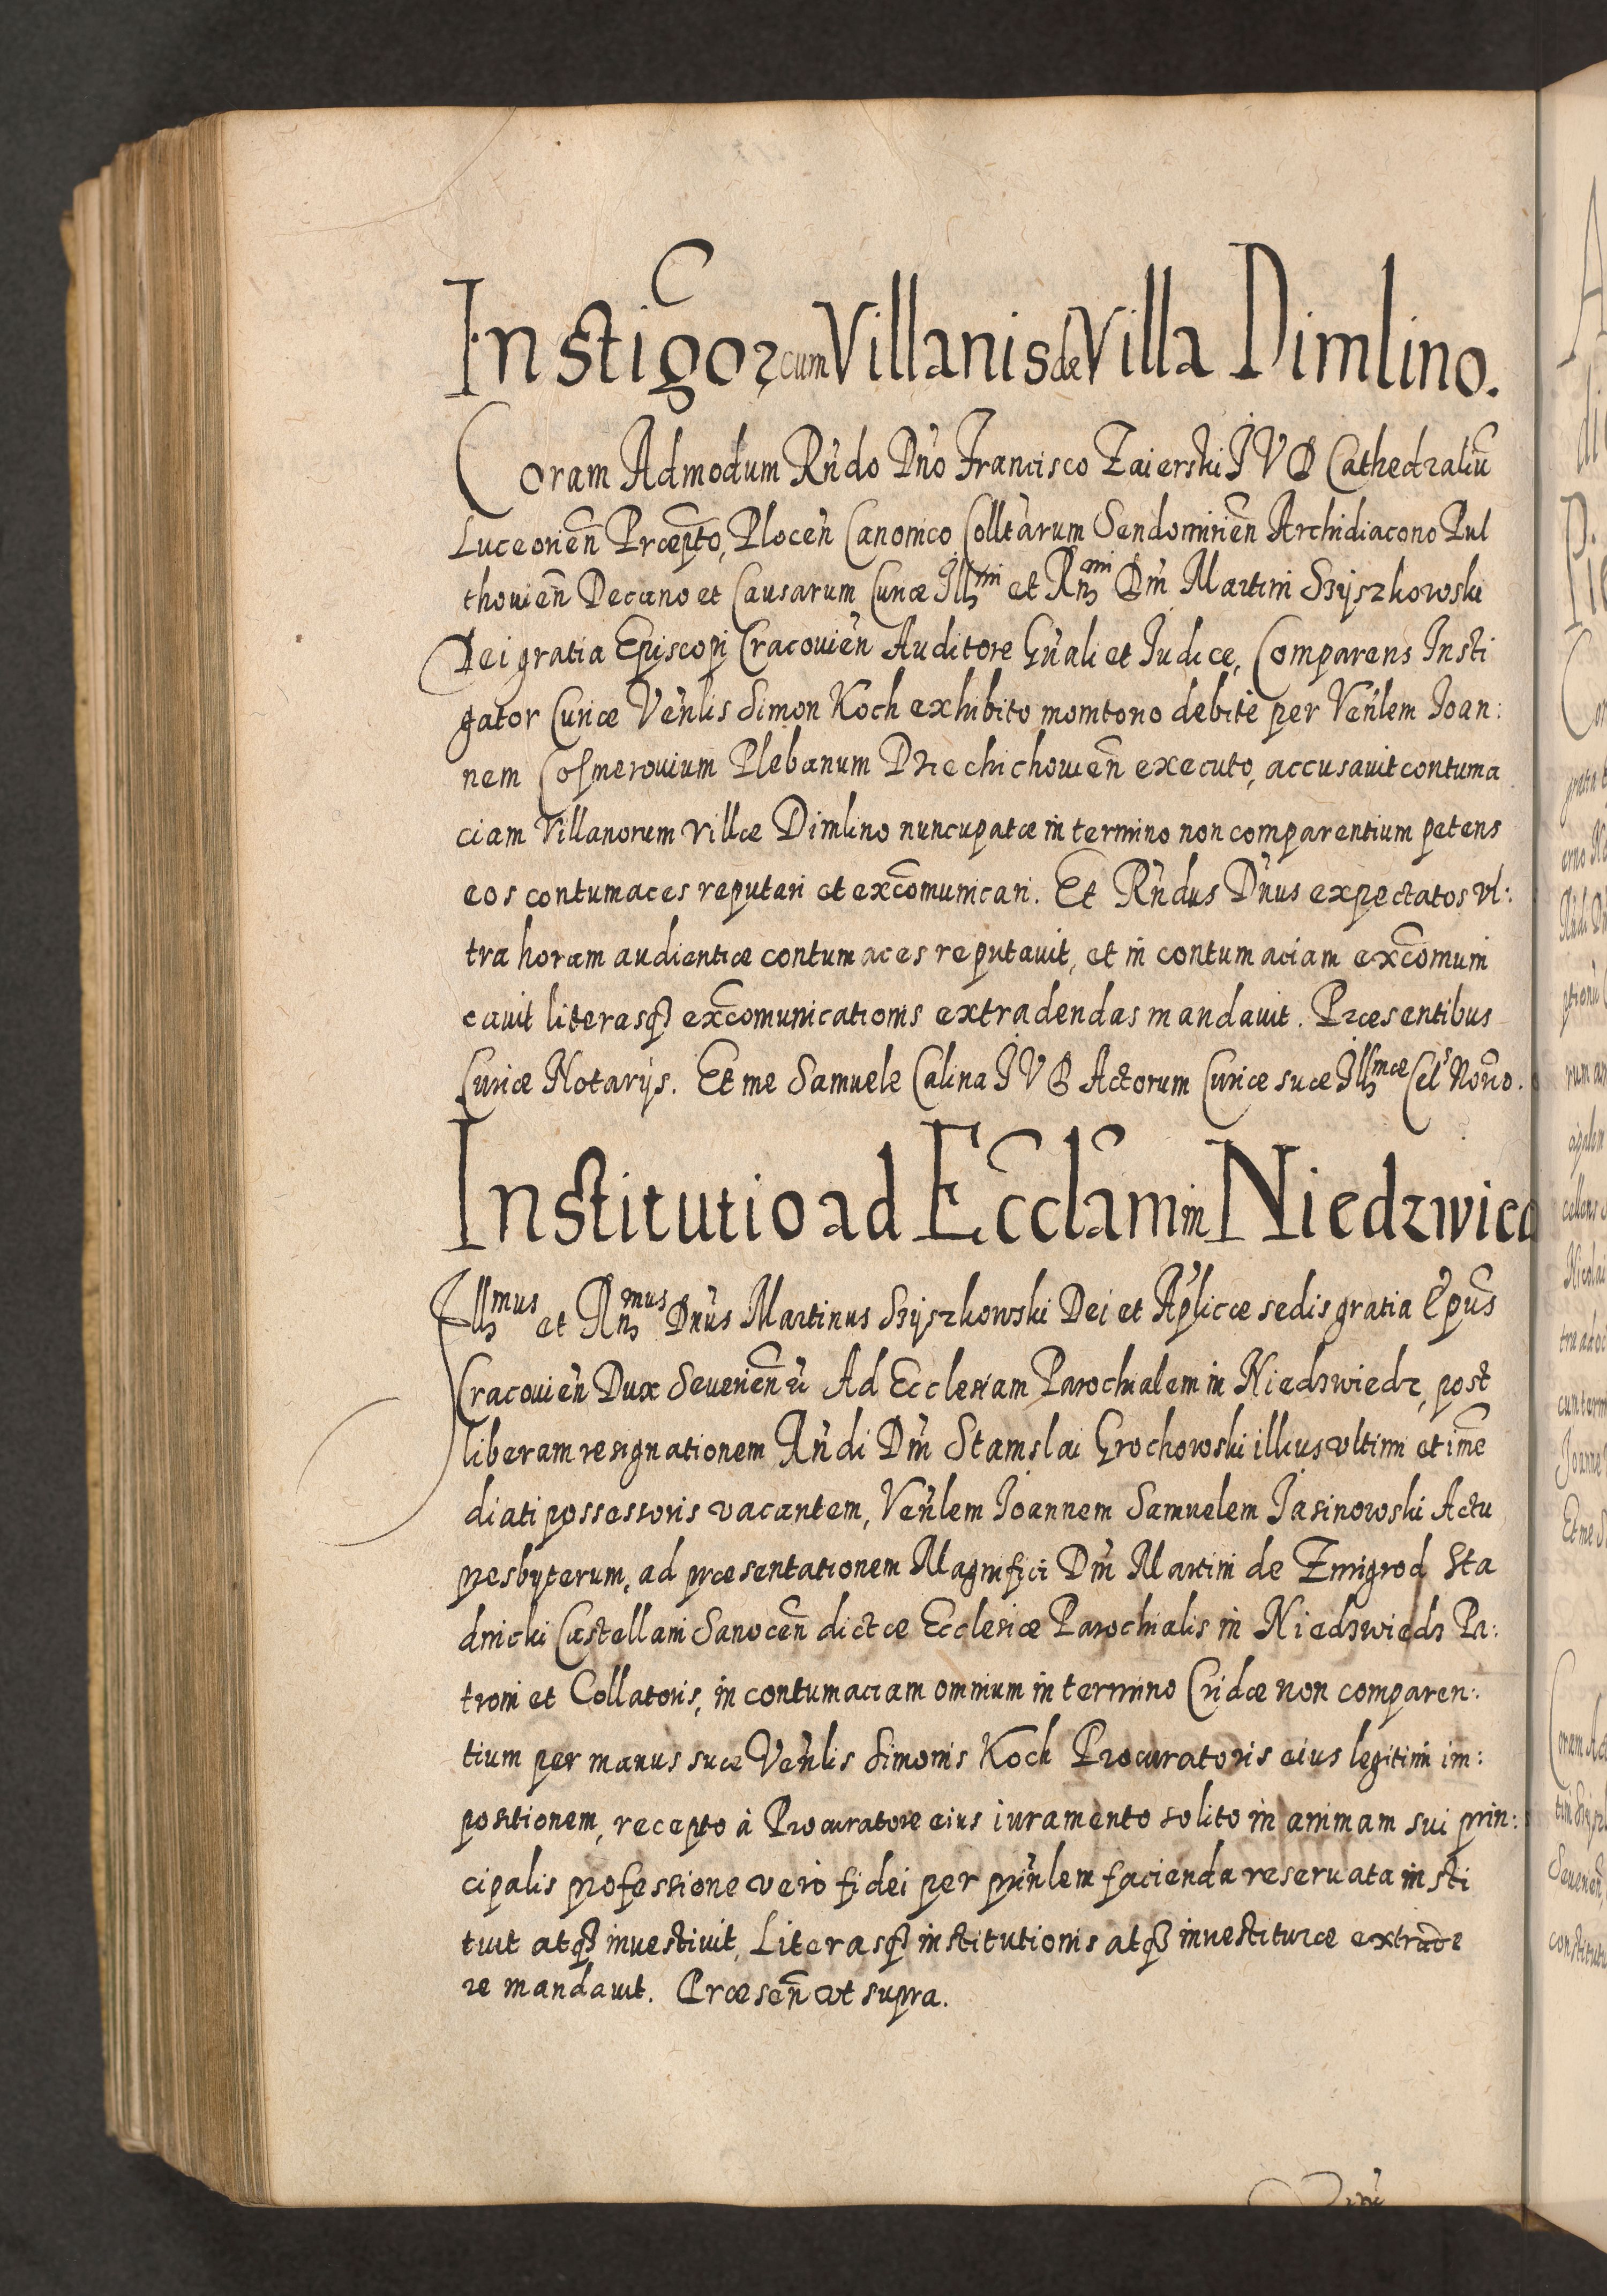 Instigor cum Villanis de Villa Dimlino.
Coram Admodum Rndo Dno Francisco Zaierski IVD Cathedraliu
Luceorien Præpto, Plocen Canonico Colltarum Sendomirien Archidiacono Pul
thouien Decano et Causarum Curiæ Illmi et Rnmi Dni Martini Szyszkowski
Dei gratia Episcopi Cracouien Auditore Gnali et Iudice, Comparens Insti
gator Curiæ Venlis Simon Koch exhibito momtono debite per Venlem Ioan:
nem Cosmerouium Plebanum Dziechichouien executo, accusauit contuma
ciam Villanorum villæ Dimlino nuncupatæ in termino non comparentium petens
eos contumaces reputari et excomunicari. Et Rndus Dnus expectatos vl:
tra horam audientiæ contumaces reputauit, et in contumaciam excomuni
cauit literasq excomunicationis extradendas mandauit. Præsentibus
Curiæ Notarijs. Et me Samuele Calina IVD Actorum Curiæ suæ Illmæ Cels Norio.
Institutio ad Ecclam in Niedzwica
Illmus et Rnmus Dnus Martinus Szyszkowski Dei et Aplicæ sedis gratia Epus
Cracouien Dux Seuerien Ad Ecclesiam Parochialem in Niedzwiedz, post
liberam resignationem Rndi Dni Stanislai Grochowski illius vltimi et ime
diati possessoris vacantem, Venlem Ioannem Samuelem Iasinowski Actu
presbyterum, ad præsentationem Magnifici Dni Martini de Zmigrod Sta
dnicki Castellani Sanocen dictæ Ecclesiæ Parochialis in Niedzwiedz Pa:
troni et Collatoris, in contumaciam omnium in termino Cridæ non comparen:
tium per manus suæ Venlis Simonis Koch Procuratoris eius legitimi im:
positionem, recepto à Procuratore eius iuramento solito in animam sui prin:
cipalis professione vero fidei per prinlem facienda reseruata insti
tuit atq inuestiuit, Literasq institutionis atq inuestituræ extrade
re mandauit. Præsen vt supra.